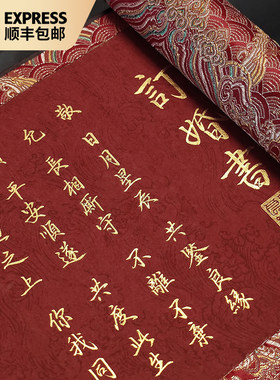 EXPRESS
顺丰包邮
訂婚書
敬 日月星辰 共鑒良緣
允 長相廝守 不離不棄
平安順遂 共度此生
之上 你我同